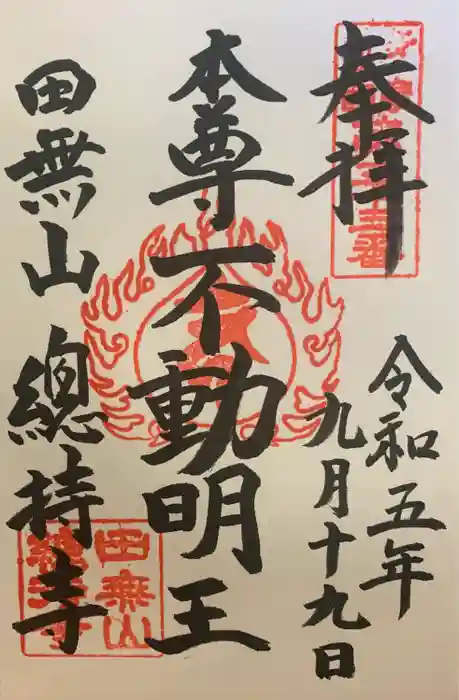 奉拝
令和五年
九月十九日
本尊不動明王
田無山總持寺
田無山
總持寺